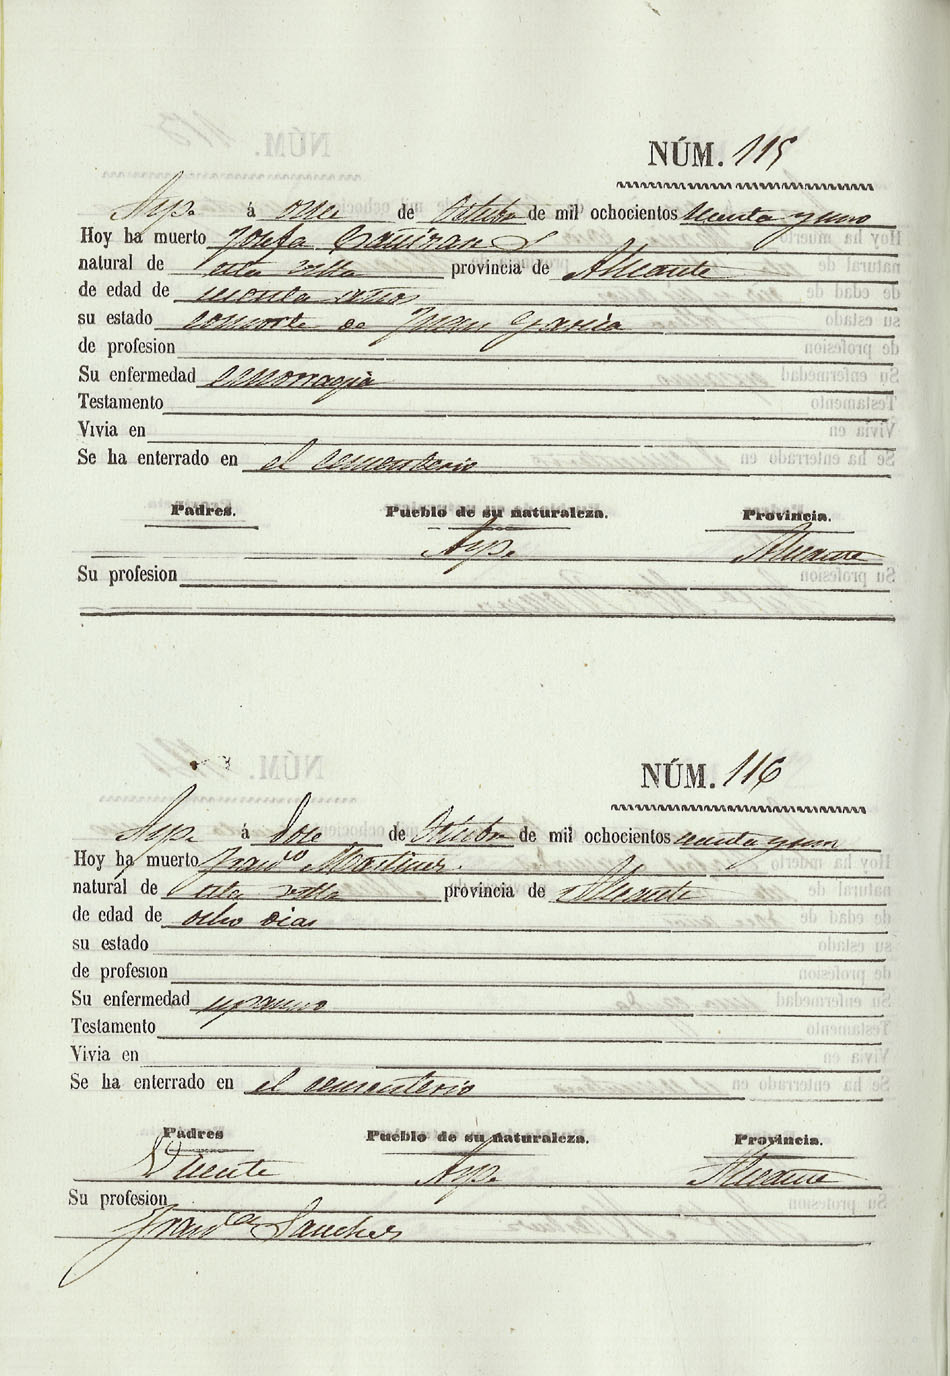 NÚM. 115
Aspe á once de Octubre de mil ochocientos
Hoy ha muerto Josefa
natural de esta villa provincia de Alicante
de edad de años
su estado consorte de Juan Garcia
de profesion
Su enfermedad emorragia
Testamento
Vivia en
Se ha enterrado en el cementerio
Padres. Pueblo de su naturaleza. Provincia.
Aspe Alicante
Su profesion
NÚM. 116
Aspe á doce de Octubre de mil ochocientos
Hoy ha muerto Franco Martinez
natural de esta villa provincia de Alicante
de edad de ocho dias
su estado
de profesion
Su enfermedad espasmo
Testamento
Vivia en
Se ha enterrado en el cementerio
Padres Pueblo de su naturaleza. Provincia.
Vicente Aspe Alicante
Su profesion
Franca Sanchez